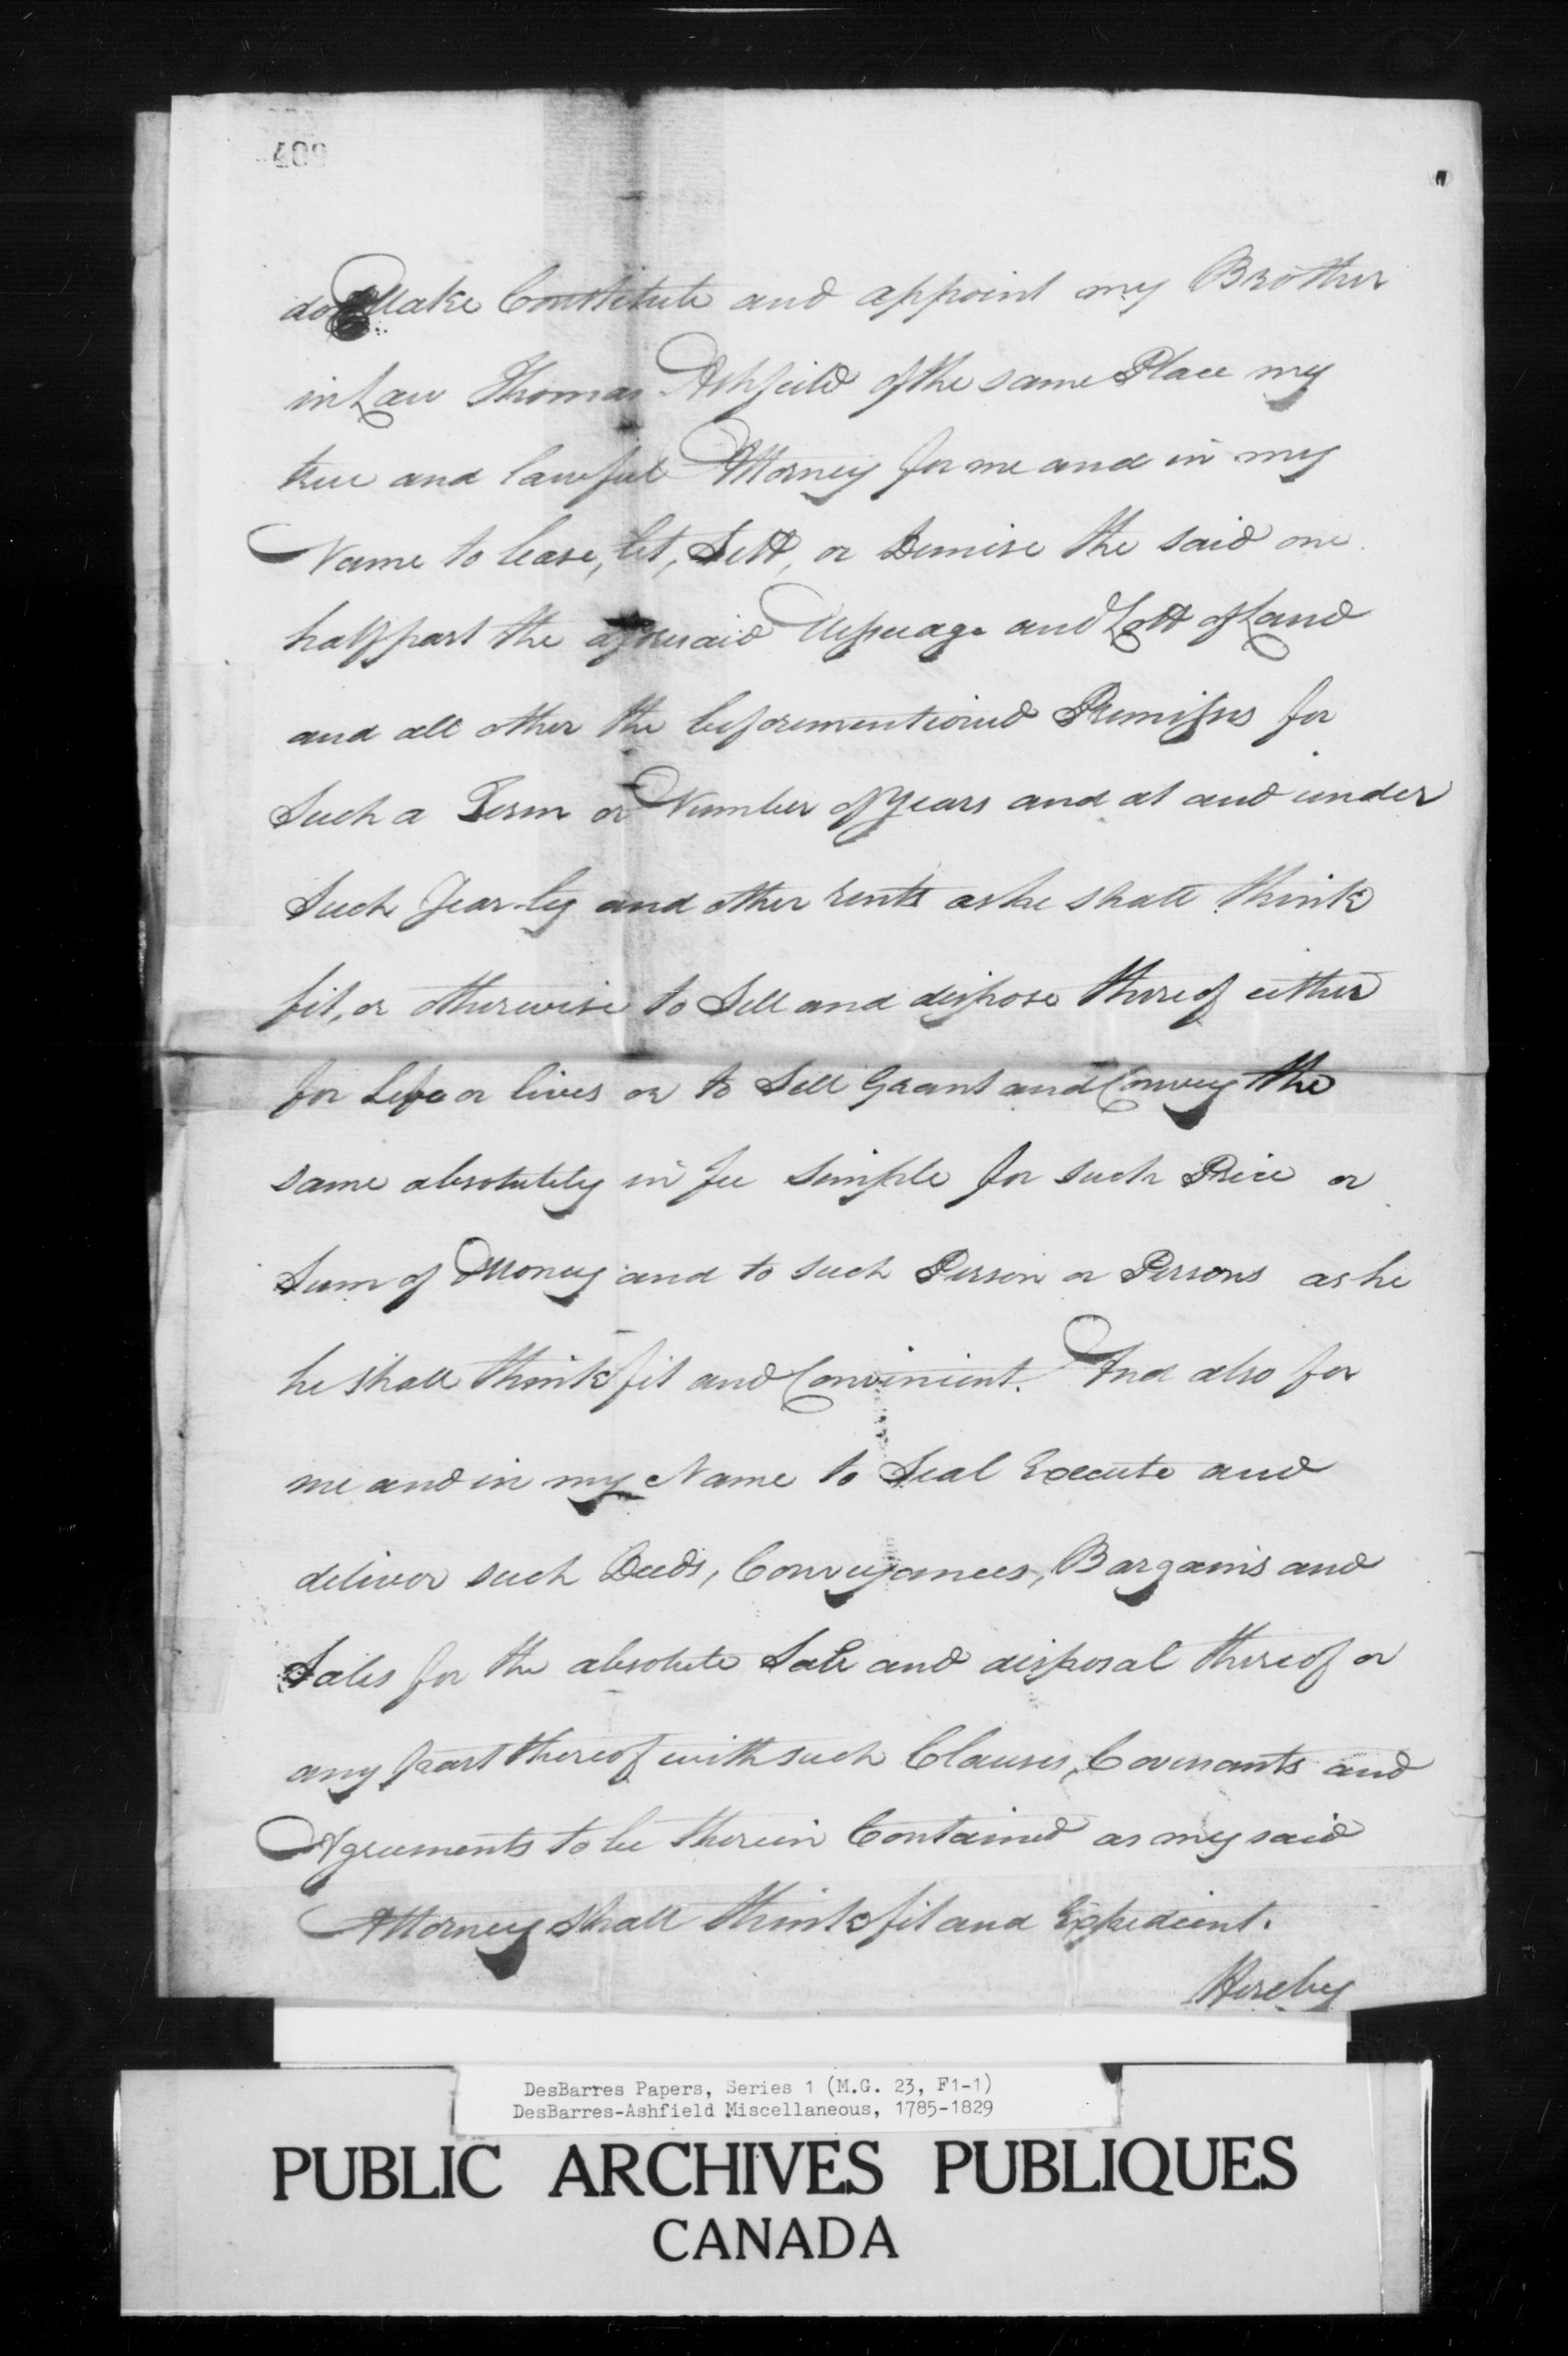 409
do Make Constitute and appoint my Brother
in Law Thomas Ashfeild of the same Place my
true and lawful Attorney for me and in my
Name to lease, let, Sett, or Demise the said one
half part the aforesaid Messuage and Lott of Land
and all other the beforementioned Premisses for
Such a Term or Number of Years and at and under
Such Year-ly and other rents as he shall think
fit, or otherwise to Sell and dispose thereof either
for Life or lives or to Sell Grant and Convey the
same absolutely in fee simple for such Price or
Sum of Money and to such Person or Persons as he
he shall think fit and Convinient. And also for
me and in my Name to Seal Execute and
deliver such Deeds, Conveyances, Bargains and
Sales for the absolute Sale and disposal thereof or
any part thereof with such Clauses, Covenants and
Agreements to be therein Contained as my said
Attorney shall think fit and Expedient.
Hereby
DesBarres Papers, Series 1 (M.G. 23, F1-1)
DesBarres-Ashfield Miscellaneous, 1785-1829
PUBLIC ARCHIVES PUBLIQUES
CANADA